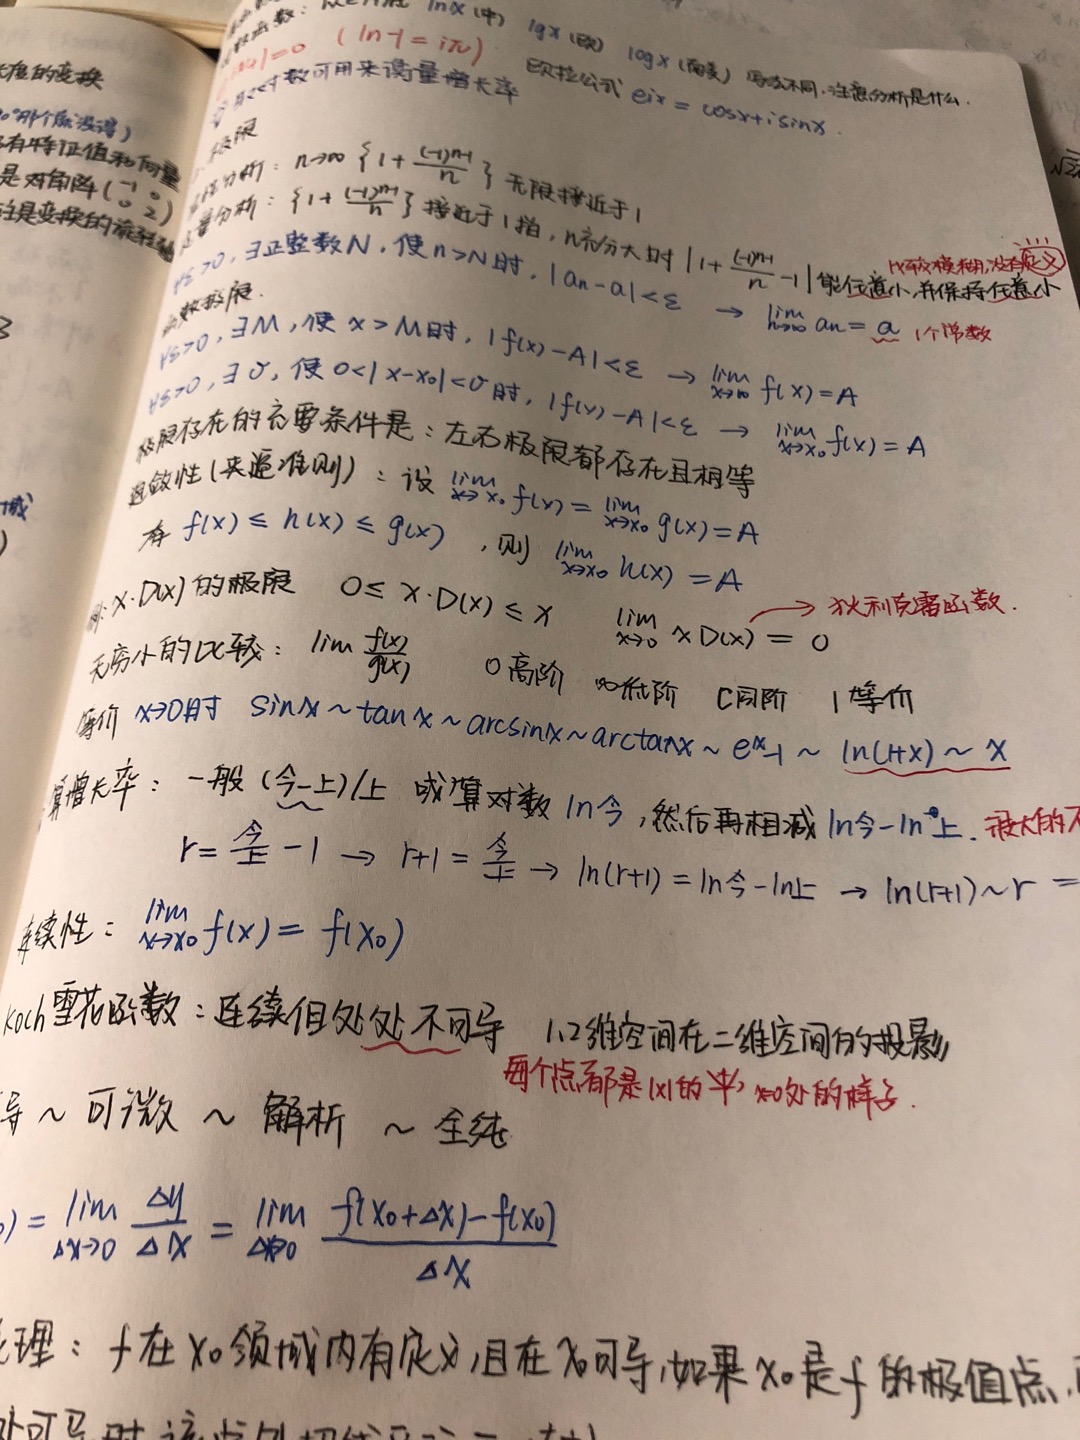 长度的变换
有特征值和向量
是对角阵(-1 0 0 2)
注是变换的旋转轴
lnx(中) lgx(欧) logx(南美) 写法不同,注意分析是什么.
=0 (ln-1=iπ) 欧拉公式 eix = cosx+isinx.
对数可用来衡量增长率
极限
分析: n→∞ {1+(-1)^{n-1}/n} 无限接近于1
量分析: {1+(-1)^{n-1}/n} 接近于1指, n充分大时 |1+(-1)^{n-1}/n -1| 能任意小,并保持任意小
模糊,没有定义
∀ε>0, ∃正整数N, 使n>N时, |an-a|<ε → lim n→∞ an = a 1个常数
函数极限.
∀ε>0, ∃M, 使 x>M时, |f(x)-A|<ε → lim x→∞ f(x)=A
∀ε>0, ∃δ, 使 0<|x-x0|<δ时, |f(x)-A|<ε → lim x→x0 f(x)=A
极限存在的充要条件是: 左右极限都存在且相等
敛性(夹逼准则): 设 lim x→x0 f(x) = lim x→x0 g(x) = A
有 f(x) ≤ h(x) ≤ g(x), 则 lim x→x0 h(x) = A
例: x·D(x)的极限 0≤ x·D(x) ≤ x lim x→0 xD(x) = 0 → 狄利克雷函数.
无穷小的比较: lim f(x)/g(x) 0高阶 ∞低阶 C同阶 1等价
等价 x→0时 sinx ~ tanx ~ arcsinx ~ arctanx ~ e^x-1 ~ ln(1+x) ~ x
算增长率: 一般 (今-上)/上 或算对数 ln今, 然后再相减 ln今-ln上.
r = 今/上 -1 → r+1 = 今/上 → ln(r+1) = ln今-ln上 → ln(r+1)~r =
连续性: lim x→x0 f(x) = f(x0)
Koch雪花函数: 连续但处处不可导 1.2维空间在二维空间的投影
每个点都是|x|的 x=0处的样子.
导 ~ 可微 ~ 解析 ~ 全纯
) = lim Δx→0 Δy/Δx = lim Δx→0 f(x0+Δx)-f(x0)/Δx
理: f在x0领域内有定义,且在x0可导,如果x0是f的极值点,